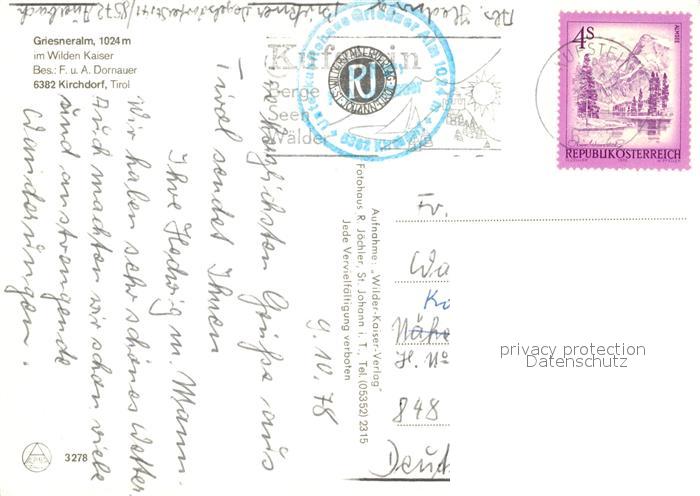 Griesneralm, 1024 m
im Wilden Kaiser
Bes.: F. u. A. Dornauer
6382 Kirchdorf, Tirol
Kufstein
Berge
Seen
Wälder
RJ
4S
ALMSEE
REPUBLIK ÖSTERREICH
9.10.78
Herzlichsten Grüße aus
Tirol sendet Ihnen
Ihre Hedwig m. Mann.
Wir haben sehr schönes Wetter.
Auch machten wir schon viele
und anstrengende
Wanderungen.
Aufnahme: „Wilder-Kaiser-Verlag"
Fotohaus R. Jöchler, St. Johann i. T., Tel. (05352) 2315
Jede Vervielfältigung verboten
Fr.
Wa
Ko
Nähe
H. No
848
Deut
privacy protection
Datenschutz
3278